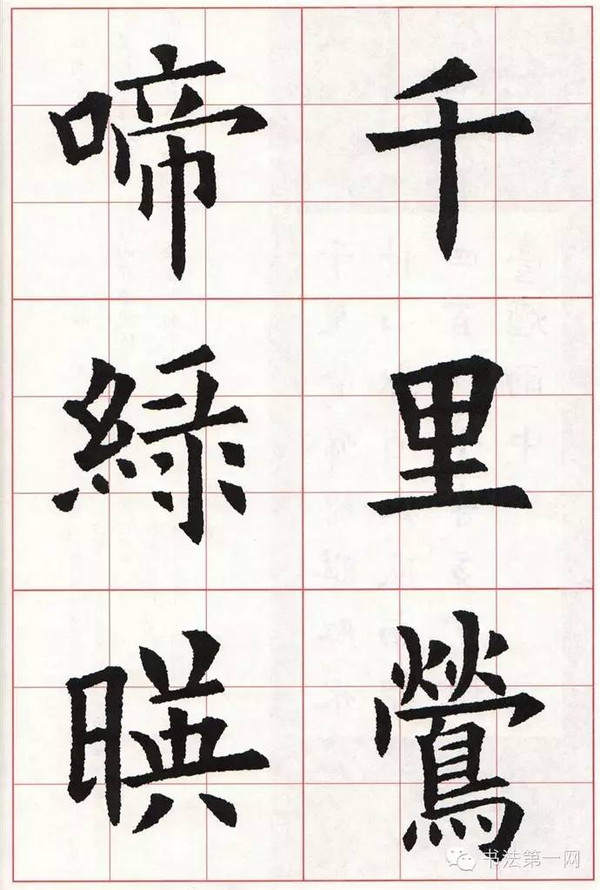 千里鶯
啼綠暎
书法第一网